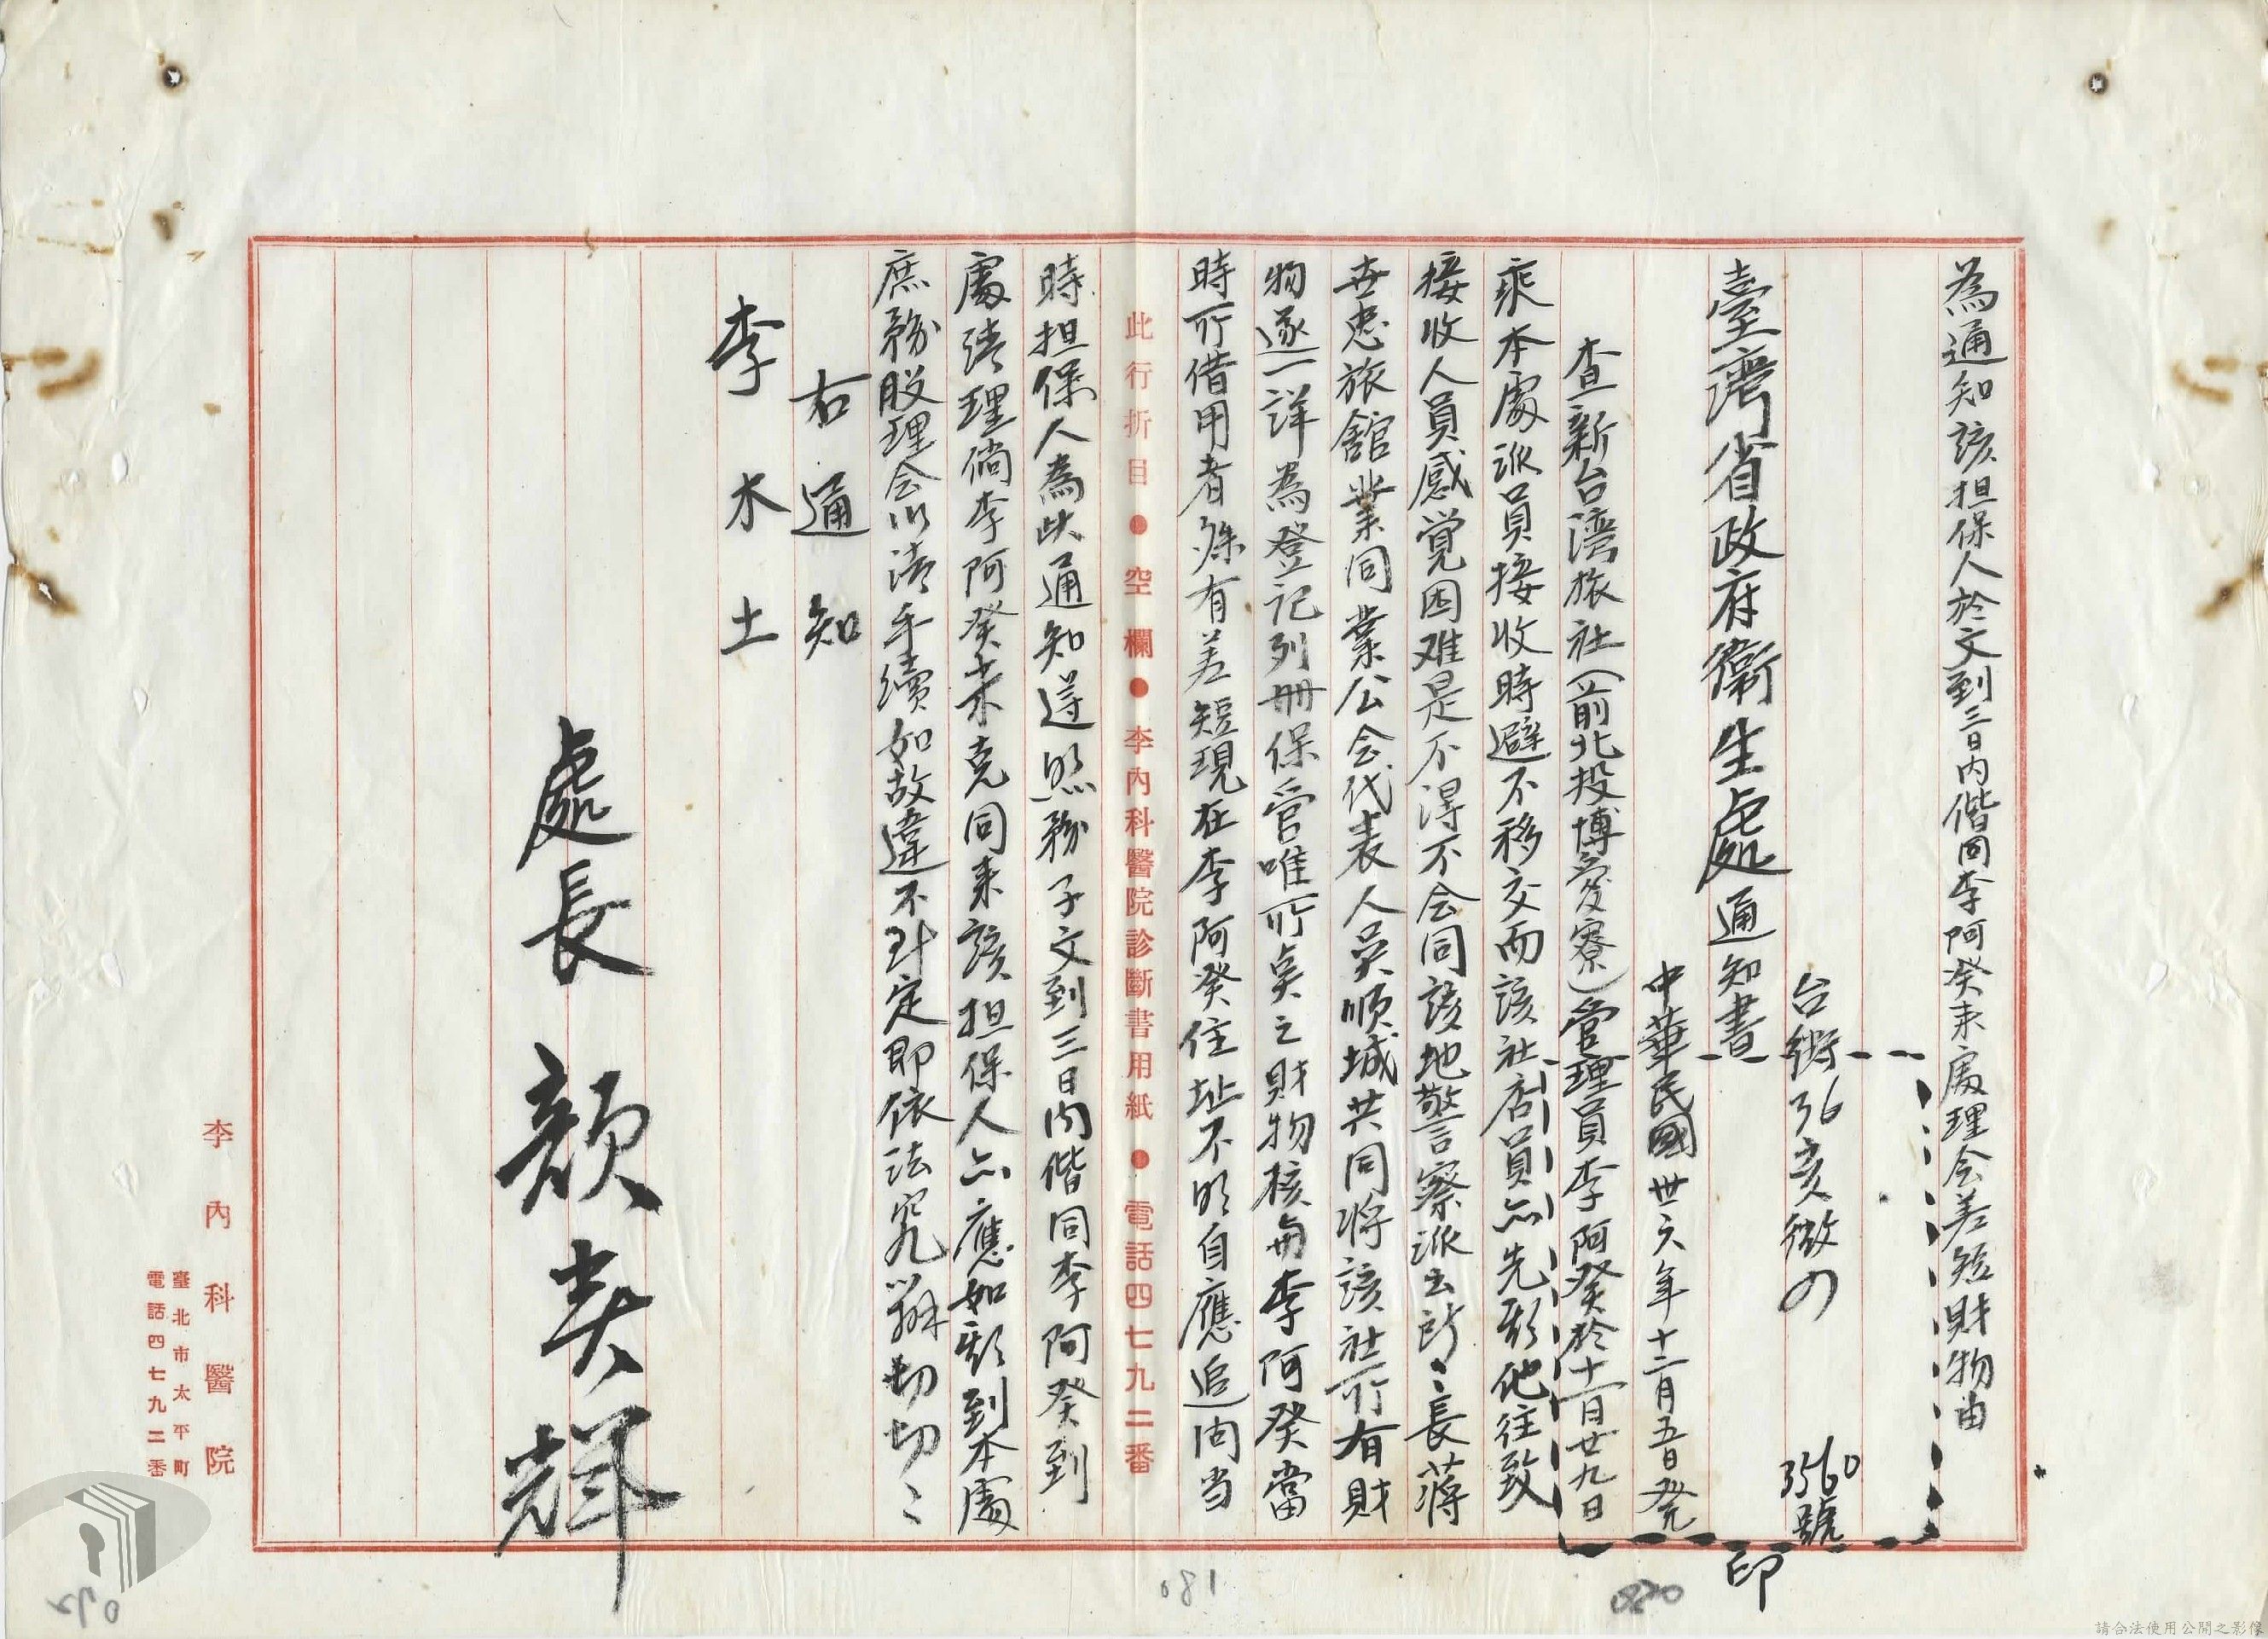 為通知該担保人於文到三日內偕同李阿癸来處理会差短財物由
台衛36亥微の 3560號
臺灣省政府衛生處通知書
印
中華民國卅六年十二月五日発
查新台湾旅社（前北投博愛寮）管理員李阿癸於十一月廿九日
乘本處派員接收時避不移交而該社店員亦先形他往致
接收人員感覚困难是不得不会同該地警察派出所〻長蔣
世忠旅舘業同業公会代表人吳順城共同將該社所有財
物逐一詳為登記列冊保管唯所奌之財物核与李阿癸當
時所借用者殊有差短現在李阿癸住址不明自應追向当
此行折目●空欄●李內科醫院診斷書用紙●電話四七九二番
時担保人為此通知遵照務于文到三日內偕同李阿癸到
處清理倘李阿癸未克同来該担保人亦應如期到本處
庶務股理会以清手續如故違不到定即依法究辦切切〻
右通知
李水土
處長 顏春輝
李內科醫院
臺北市太平町
電話四七九二番
081
請合法使用公開之影像